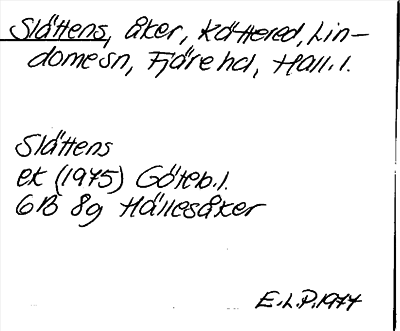 Slättens, åker, Kåttered, Lin-
domesn, Fjäre hd, Hall. l.
Slättens
ek (1975) Göteb. l.
6B 8g Hällesåker
E.L.P. 1977